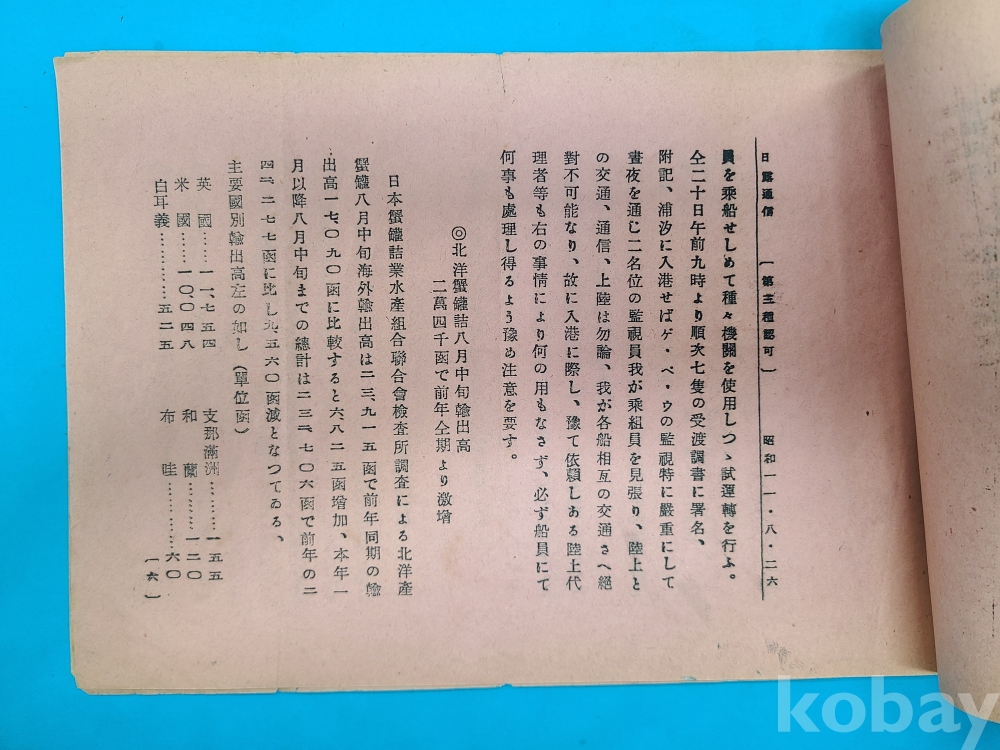 日露通信 〔第三種認可〕 昭和一一・八・二六
員を乘船せしめて種々機關を使用しつゝ試運轉を行ふ。
仝二十日午前九時より順次七隻の受渡調書に署名、
附記、浦汐に入港せばゲ・ペ・ウの監視特に嚴重にして
晝夜を通じ二名位の監視員我が乘組員を見張り、陸上と
の交通、通信、上陸は勿論、我が各船相互の交通さへ絕
對不可能なり、故に入港に際し、豫て依賴しある陸上代
理者等も右の事情により何の用もなさず、必ず船員にて
何事も處理し得るよう豫め注意を要す。
◎北洋蟹罐詰八月中旬輸出高
二萬四千函で前年仝期より激增
日本蟹罐詰業水產組合聯合會檢查所調査による北洋產
蟹罐八月中旬海外輸出高は二三、九一五函で前年同期の輸
出高一七〇九〇函に比較すると六八二五函增加、本年一
月以降八月中旬までの總計は二三三、七〇六函で前年の二
四三、二七七函に比し九五六〇函減となつてゐる、
主要國別輸出高左の如し(單位函)
英國……一一、七五四 支那滿洲………一五五
米國……一〇、〇四八 和蘭…………一二〇
白耳義…………五二五 布哇…………六〇
〔一六〕
kobay